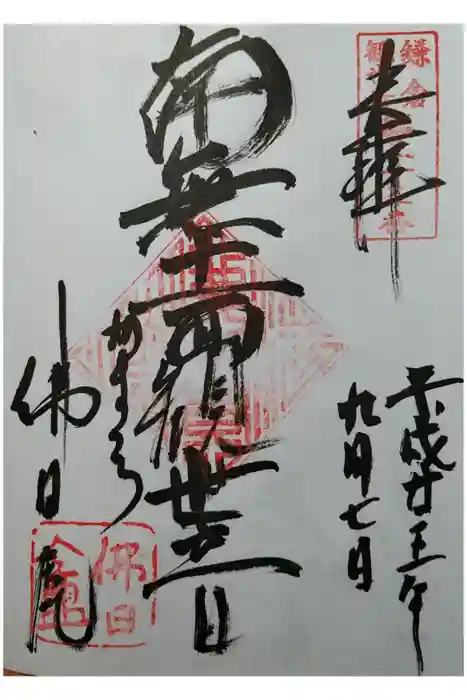 奉拝
平成廿五年
九月七日
南無十一面観世音
かまくら
佛日庵
鎌倉
佛日
庵